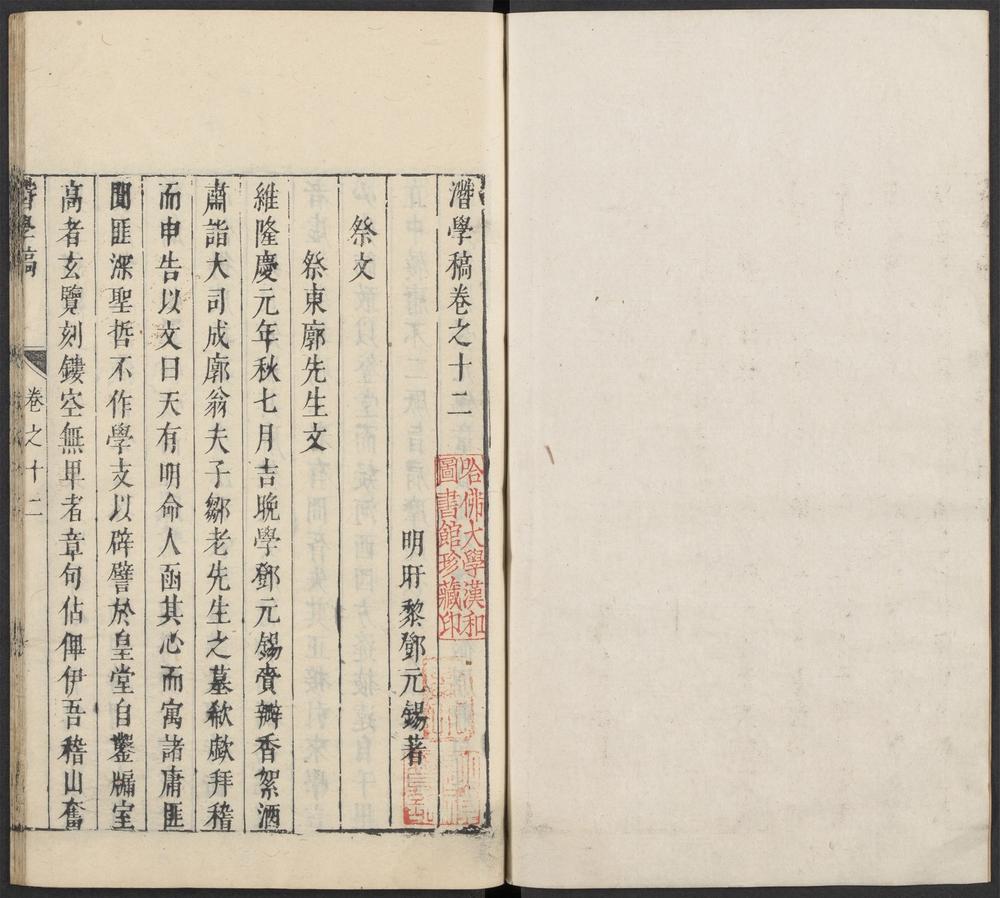 潛學稿卷之十二
哈佛大學漢和
圖書館珍藏印
明旴黎鄧元錫著
祭文
祭東廓先生文
維隆慶元年秋七月吉晚學鄧元錫賫瓣香絮酒
肅詣大司成廓翁夫子鄒老先生之墓欷歔拜稽
而申告以文曰天有明命人函其心而寓諸庸匪
聞匪深聖哲不作學支以辟譬於皇堂自鑿牖室
高者玄覽刻鏤空無卑者章句佔俾伊吾稽山奮
潛學稿
卷之十二